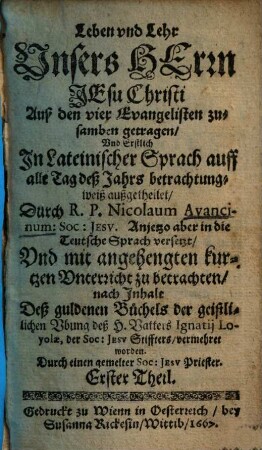 Leben vnd Lehr
Vnsers HErrn
JEsu Christi
Auß den vier Evangelisten zu-
samben getragen/
Und Erstlich
In Lateinischer Sprach auff
alle Tag deß Jahrs betrachtung-
weiß außgetheilet/
Durch R. P. Nicolaum Avanci-
num: Soc: Jesv. Anjetzo aber in die
Teutsche Sprach versetzt/
Vnd mit angehengten kur-
tzen Vnterricht zu betrachten/
nach Inhalt
Deß guldenen Büchels der geistli-
lichen Vbung deß H. Vatters Ignatij Lo-
yolæ, der Soc: Jesv Stiffters/vermehret
worden.
Durch einen gemelter Soc: Jesv Priester.
Erster Theil.
Gedruckt zu Wienn in Oesterreich / bey
Susanna Rickesin/Wittib/1667.